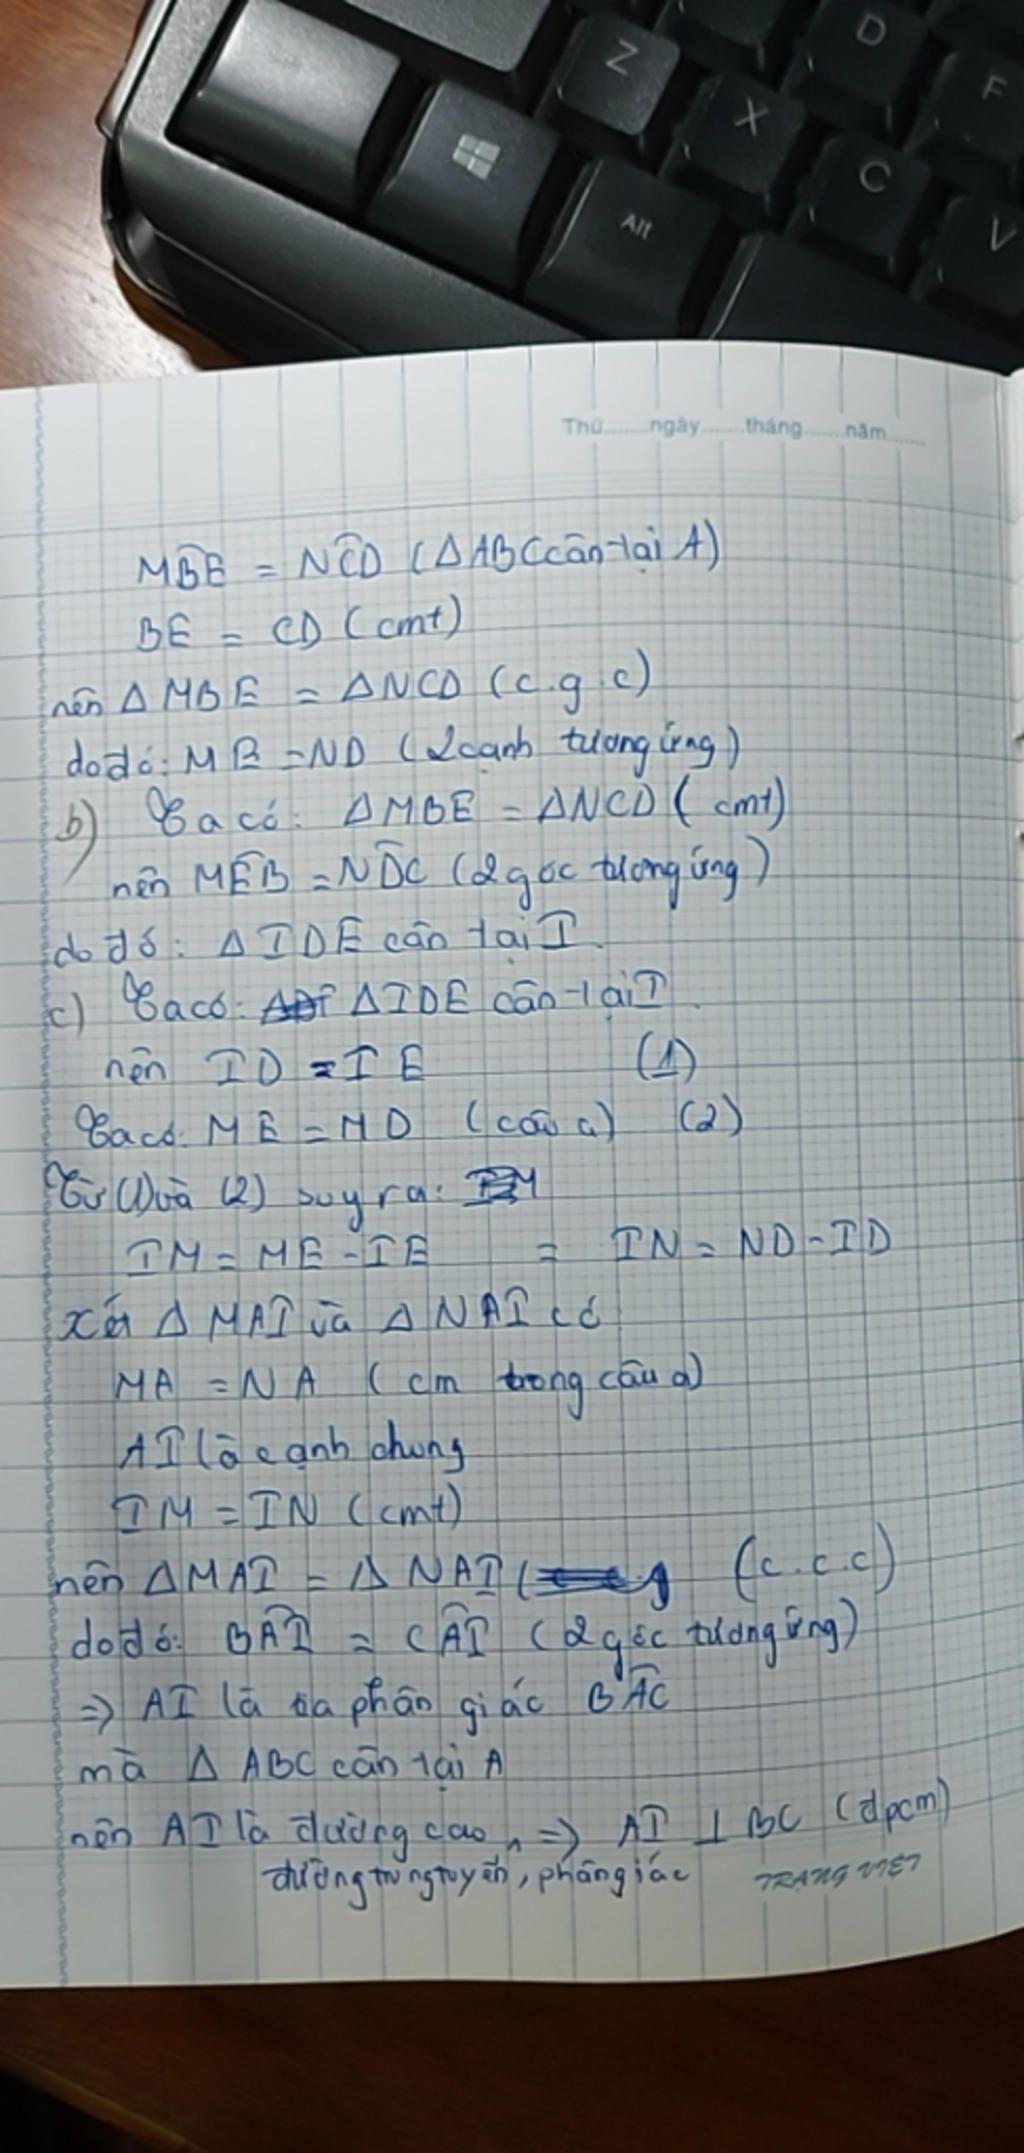 Z
D
F
X
C
V
Alt
Thứ........ngày........tháng........năm........
MB̂E = NĈD (Δ ABC cân tại A)
BE = CD (cmt)
nên Δ MBE = Δ NCD (c.g.c)
do đó: ME = ND (2 cạnh tương ứng)
b) Ta có: Δ MBE = Δ NCD (cmt)
nên MÊB = ND̂C (2 góc tương ứng)
do đó: Δ IDE cân tại I.
c) Ta có: Δ IDE cân tại I.
nên ID = IE (1)
Ta có: ME = MD (câu a) (2)
Từ (1) và (2) suy ra:
IM = ME - IE = IN = ND - ID
xét Δ MAI và Δ NAI có
MA = NA (cm trong câu a)
AI là cạnh chung
IM = IN (cmt)
nên Δ MAI = Δ NAI ( (c.c.c)
do đó: BÂI = CÂI (2 góc tương ứng)
=> AI là tia phân giác BÂC
mà Δ ABC cân tại A
nên AI là đường cao => AI ⊥ BC (đpcm)
đường trung tuyến, phân giác
TRANG VIET